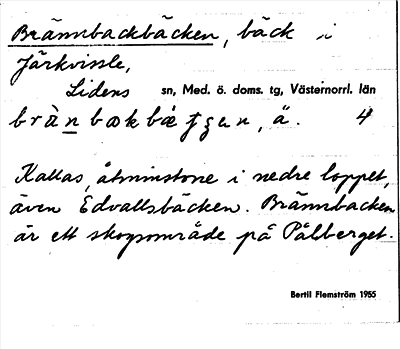 Brännbackbäcken, bäck i
Järkvissle,
Lidens sn, Med. ö. doms. tg, Västernorrl. län
Kallas, åtminstone i nedre loppet,
även Edvallsbäcken. Brännbacken
är ett skogsområde på Pålberget.
Bertil Flemström 1955